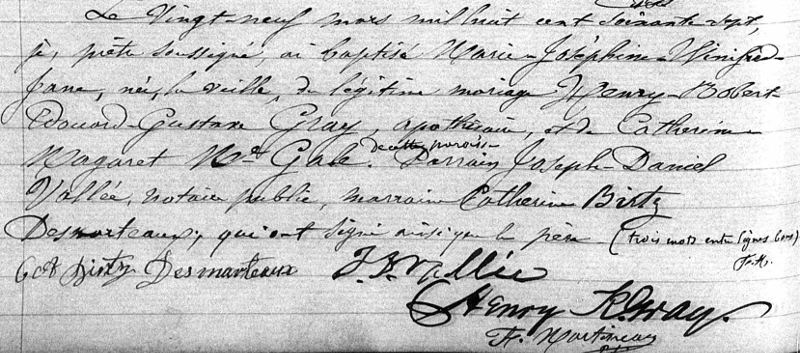 Le Vingt-neuf mars mil huit cent soixante-sept,
je, prêtre soussigné, ai baptisé Marie-Joséphine-Winifred-
Jane, née, la veille, du légitime mariage d'Henry-Robert-
Edouard-Gustave Gray, apothicaire, et de Catherine-
Magaret Mc Gale. de cette paroisse
Parrain Joseph-Daniel
Vallée, notaire public, marraine Catherine Birtz
Desmarteaux, qui ont signé ainsi que le père (trois mots entre lignes bons)
F.M.
Cat Birtz Desmarteaux J. D. Vallée
Henry R. Gray.
F. Martineau
ptre